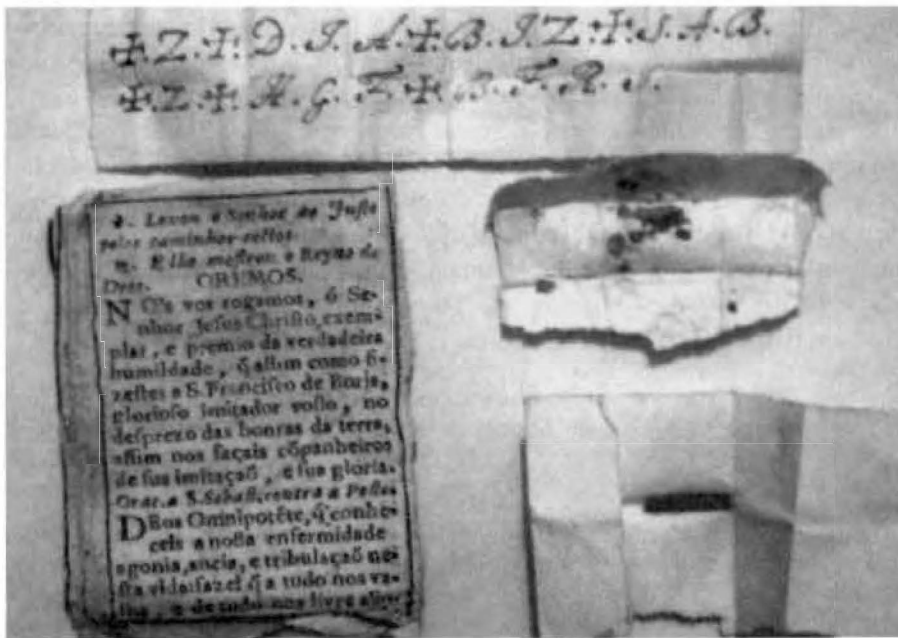 ✠.Z.✠.D.I.A.✠.B.I.Z.✠.S.A.B.
✠.Z.✠.H.G.F.✠.B.F.R.S.
℣. Levou o Senhor ao Juſto
pelos caminhos rectos.
℟. E lhe moſtrou o Reyno de
Deos. OREMOS.
NOs vos rogamos, ó Se-
nhor Jeſus Chriſto, exem-
plar, e premio da verdadeira
humildade, q̃ aſſim como fi-
zeſtes a S. Franciſco de Borja,
glorioſo imitador voſſo, no
deſprezo das honras da terra,
aſſim nos façais cõpanheiros
de ſua imitaçaõ, e ſua gloria.
Orac. a S. Sebaſt. contra a Peſte.
DEos Omnipotẽte, q̃ conhe-
ceis a noſſa enfermidade
agonia, ancia, e tribulaçaõ ne-
ſta vida: fazei q̃ a tudo nos va-
lha, e de tudo nos livre